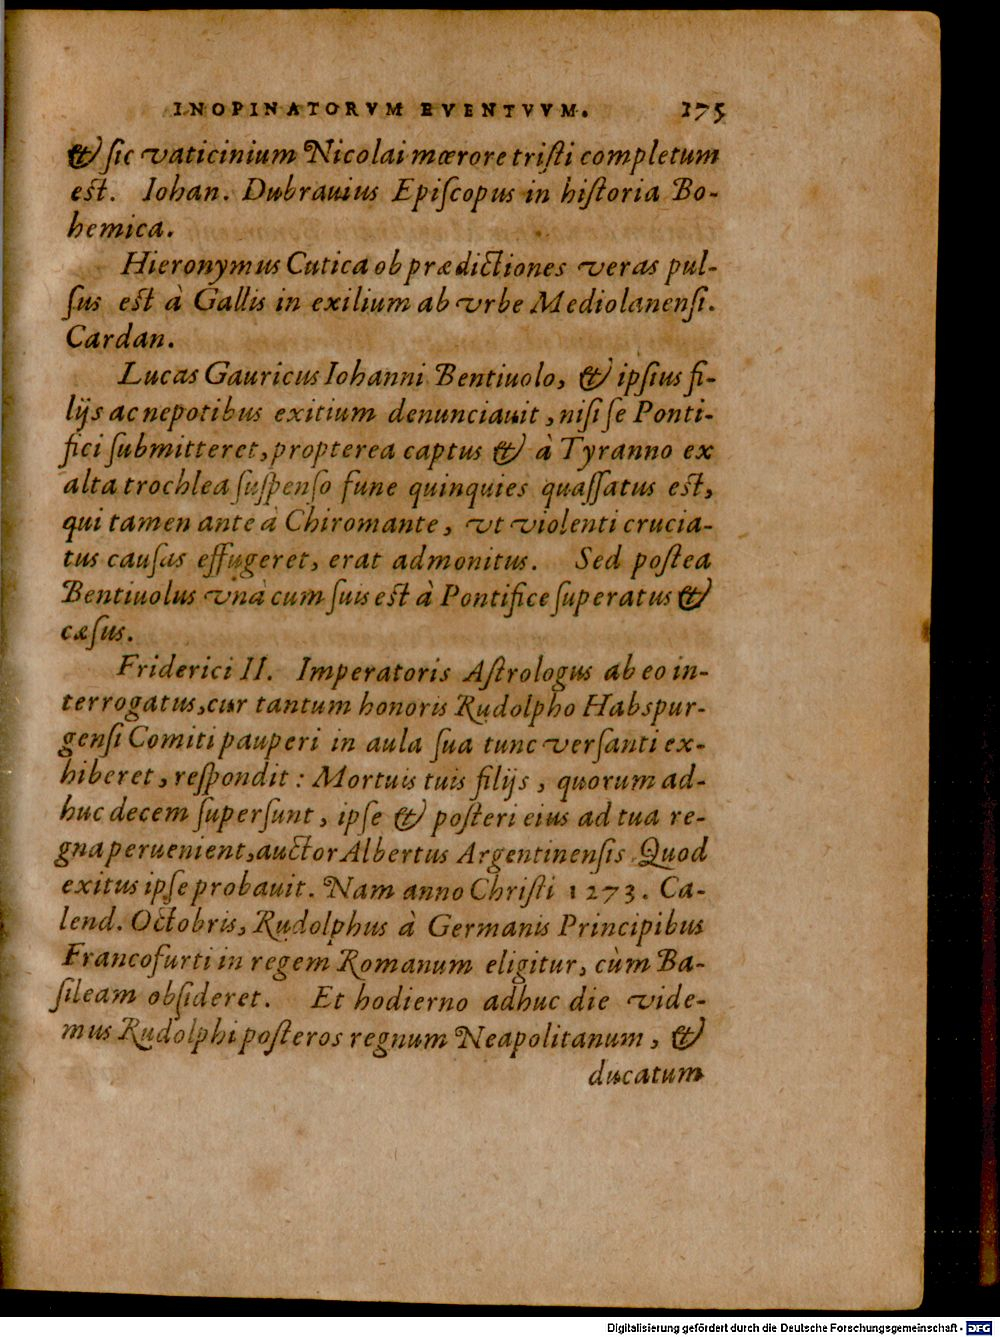 INOPINATORVM EVENTVVM. 175
& ſic vaticinium Nicolai mœrore triſti completum
eſt. Iohan. Dubrauius Epiſcopus in hiſtoria Bo-
hemica.
Hieronymus Cutica ob prædictiones veras pul-
ſus eſt à Gallis in exilium ab vrbe Mediolanenſi.
Cardan.
Lucas Gauricus Iohanni Bentiuolo, & ipſius fi-
lijs ac nepotibus exitium denunciauit, niſi ſe Ponti-
fici ſubmitteret, propterea captus & à Tyranno ex
alta trochlea ſuſpenſo fune quinquies quaſſatus eſt,
qui tamen ante à Chiromante, vt violenti crucia-
tus cauſas effugeret, erat admonitus. Sed poſtea
Bentiuolus vnà cum ſuis eſt à Pontifice ſuperatus &
cæſus.
Friderici II. Imperatoris Aſtrologus ab eo in-
terrogatus, cur tantum honoris Rudolpho Habspur-
genſi Comiti pauperi in aula ſua tunc verſanti ex-
hiberet, reſpondit: Mortuis tuis filijs, quorum ad-
huc decem ſuperſunt, ipſe & poſteri eius ad tua re-
gna peruenient, auctor Albertus Argentinenſis. Quod
exitus ipſe probauit. Nam anno Chriſti 1273. Ca-
lend. Octobris, Rudolphus à Germanis Principibus
Francofurti in regem Romanum eligitur, cùm Ba-
ſileam obſideret. Et hodierno adhuc die vide-
mus Rudolphi poſteros regnum Neapolitanum, &
ducatum
Digitalisierung gefördert durch die Deutsche Forschungsgemeinschaft - DFG